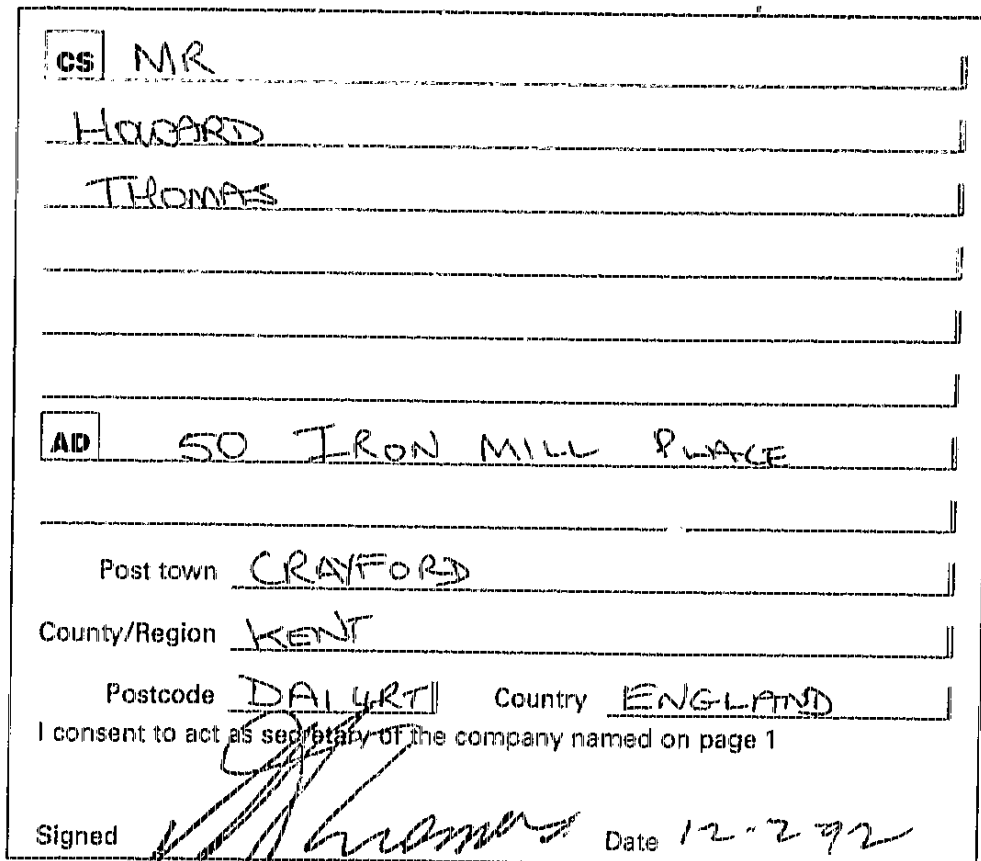 CS MR
HOWARD
THOMAS
AD 50 IRON MILL PLACE
Post town CRAYFORD
County/Region KENT
Postcode DA1 4RT Country ENGLAND
I consent to act as secretary of the company named on page 1
Signed Date 12-2-92